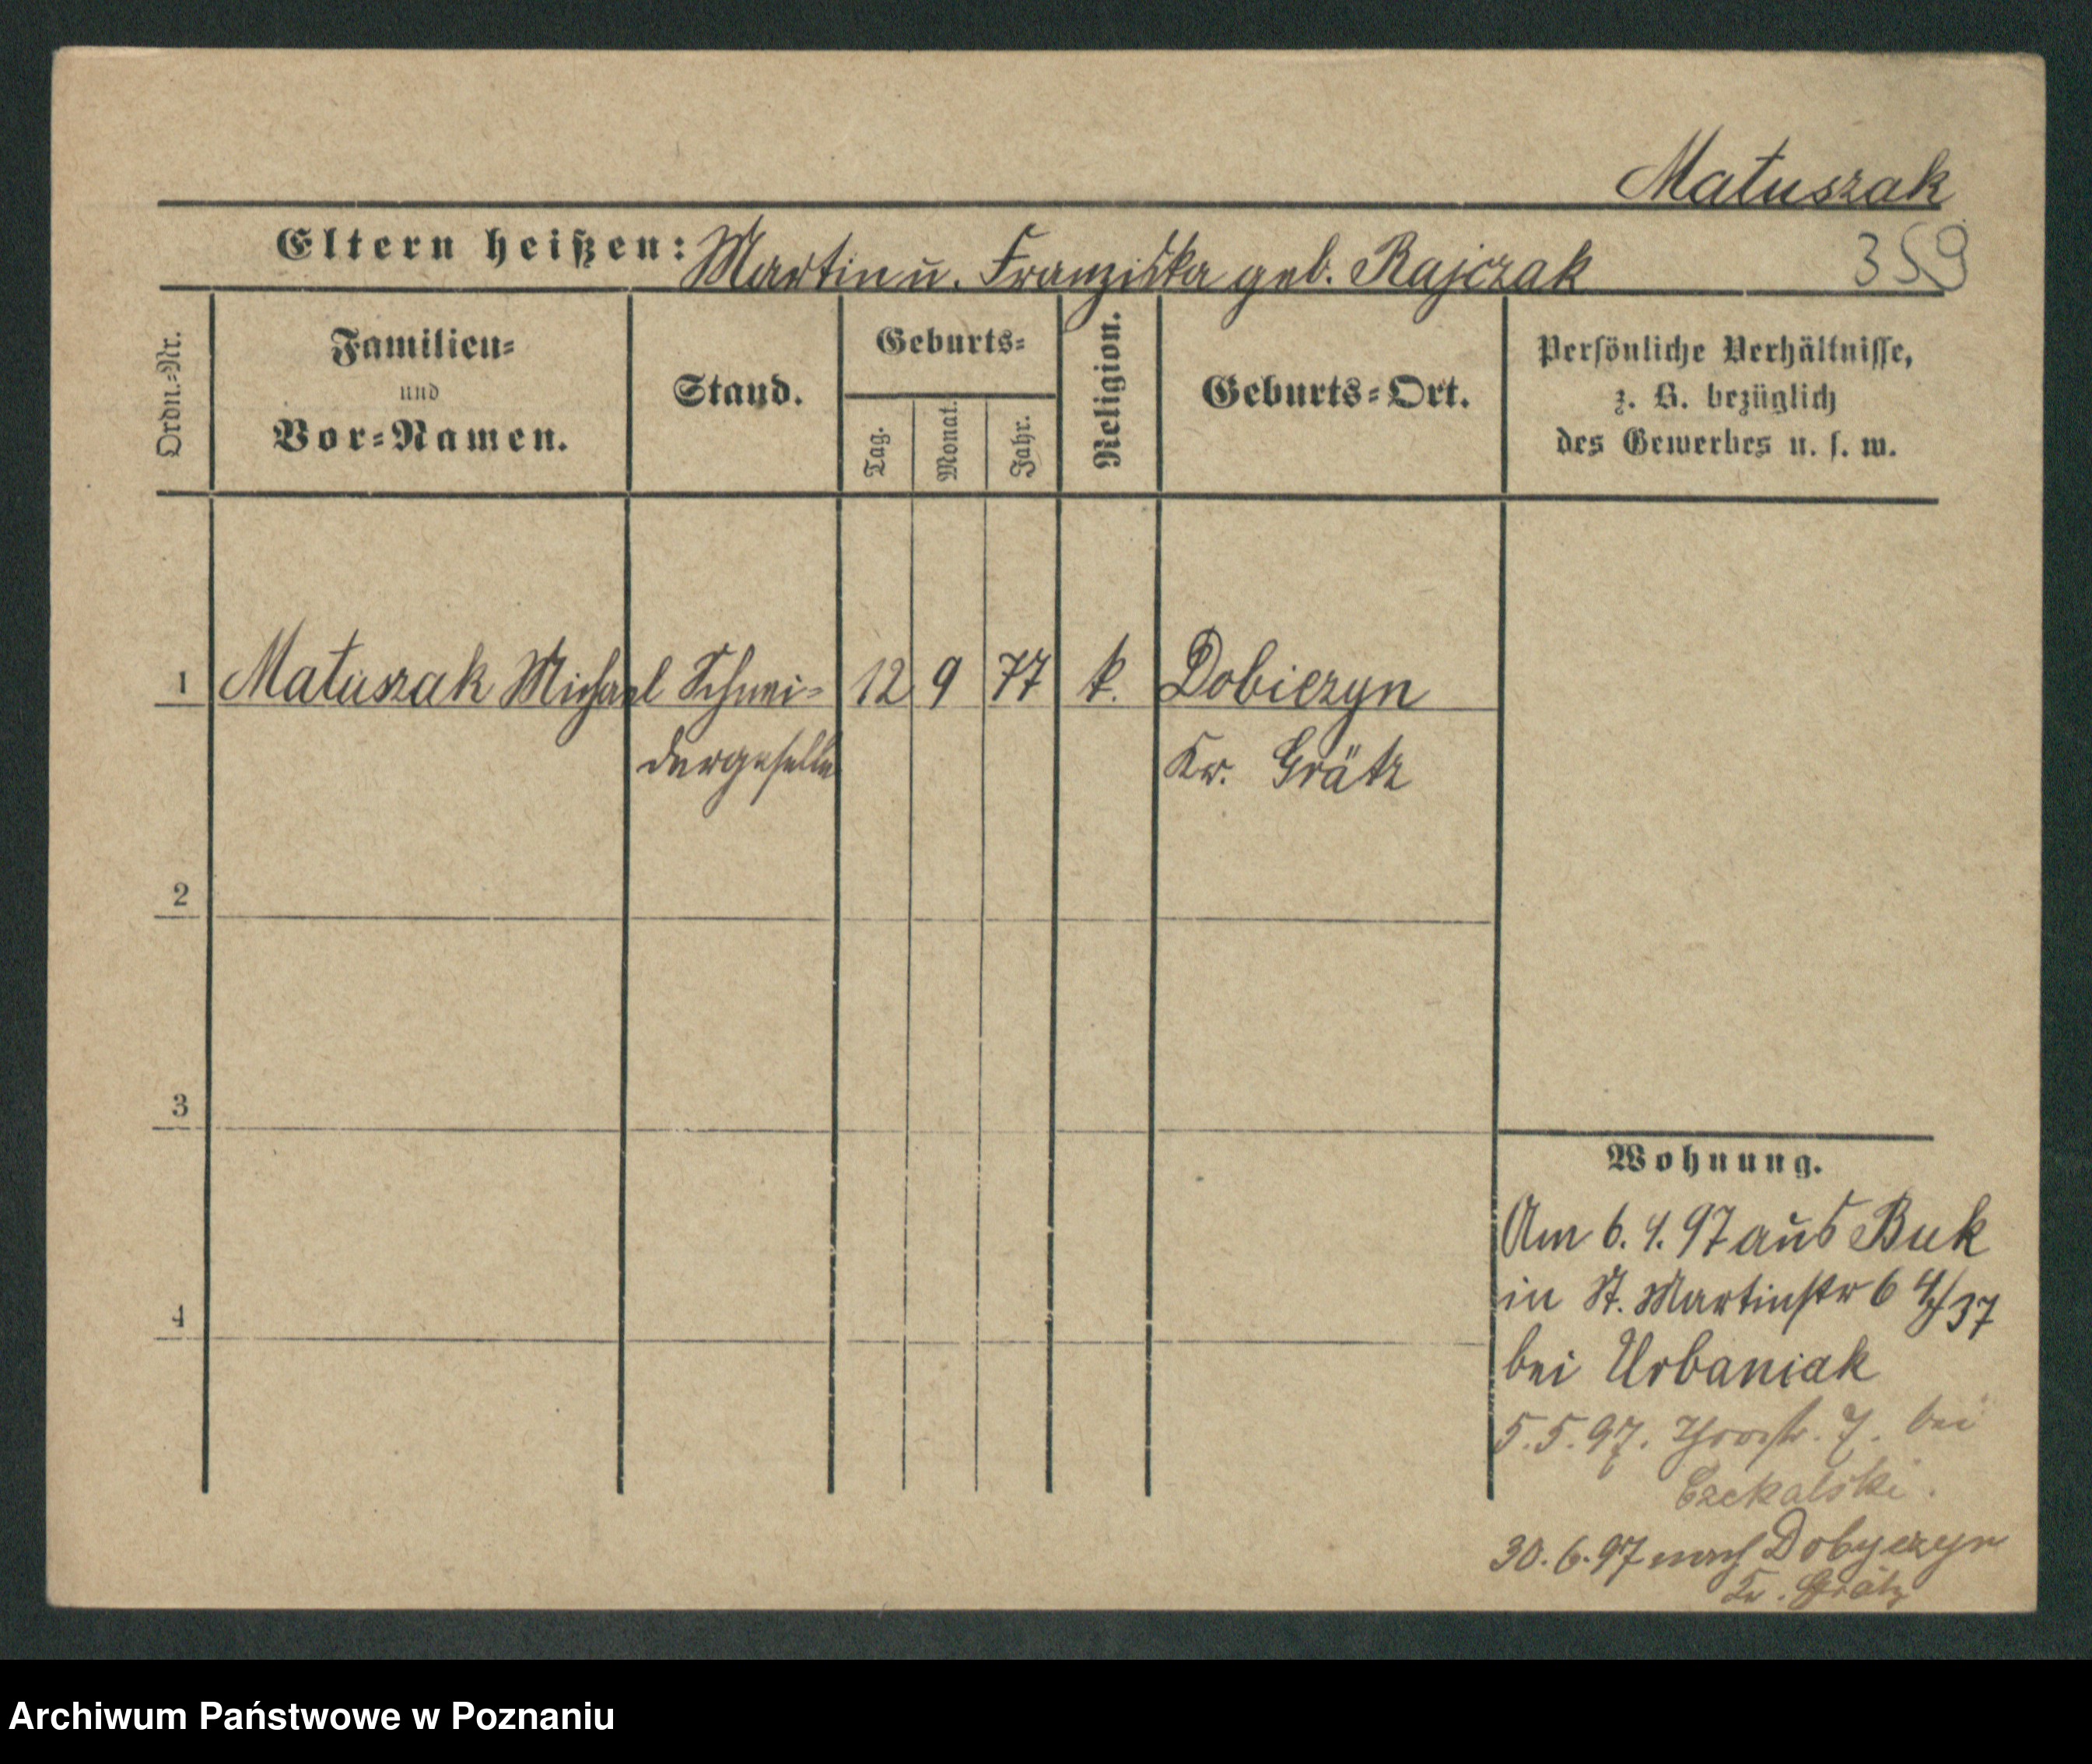 Matuszak
Eltern heißen: Martin u. Franziska geb. Rajczak
359
Ordn.-Nr.
Familien-
und
Vor-Namen.
Stand.
Geburts-
Tag.
Monat.
Jahr.
Religion.
Geburts-Ort.
Persönliche Verhältnisse,
z. B. bezüglich
des Gewerbes u. s. w.
1 Matuszak Michael Schnei- 12 9 77 k. Dobiezyn
dergeselle Kr. Grätz
2
3
4
Wohnung.
Am 6. 4. 97 aus Buk
in St. Martinstr 6
bei Urbaniak
5. 5. 97. 7. bei
Czekalski.
30. 6. 97 nach Dobyezyn
Kr. Grätz
Archiwum Państwowe w Poznaniu